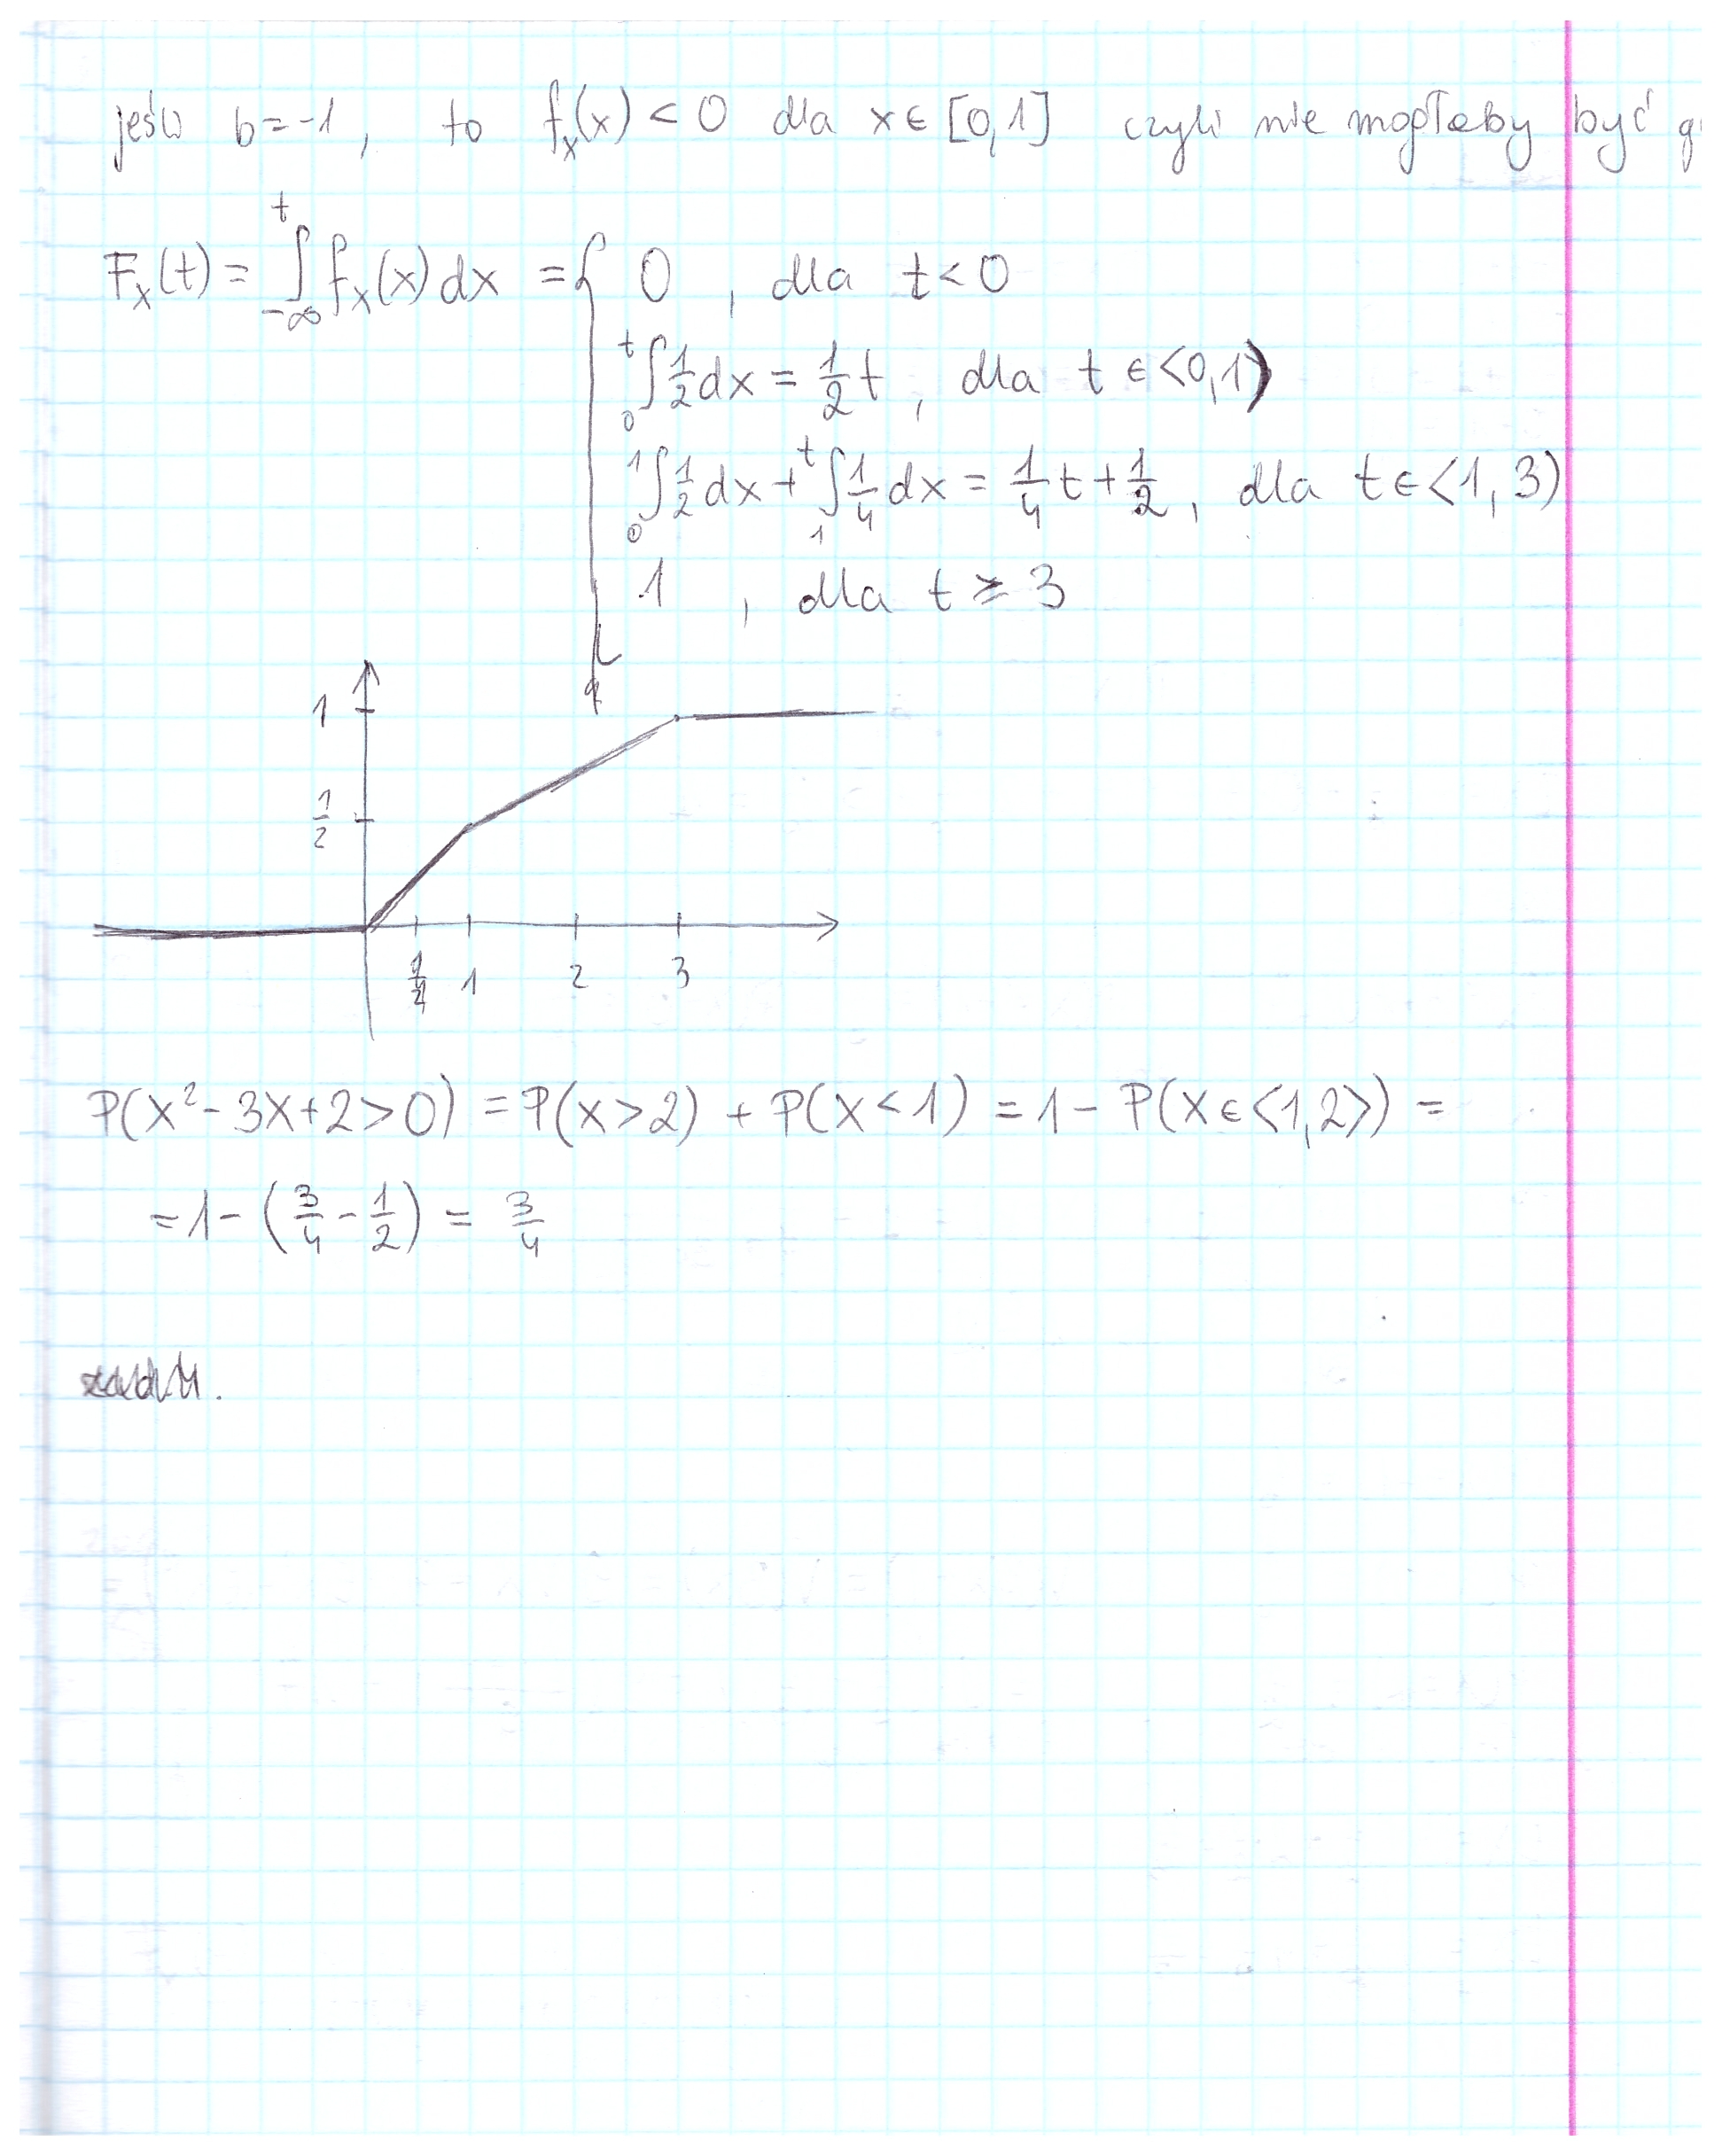 jeśli b=-1, to fₓ(x) < 0 dla x ∈ [0,1] czyli nie mogłaby być g
Fₓ(t) = ∫_{-∞}^{t} fₓ(x) dx = { 0 , dla t < 0
∫_{0}^{t} 1/2 dx = 1/2 t , dla t ∈ <0,1)
∫_{0}^{1} 1/2 dx + ∫_{1}^{t} 1/4 dx = 1/4 t + 1/2 , dla t ∈ <1, 3)
1 , dla t ≥ 3
1
1/2
1/2 1 2 3
P(X² - 3X + 2 > 0) = P(X > 2) + P(X < 1) = 1 - P(X ∈ <1,2>) =
= 1 - (3/4 - 1/2) = 3/4